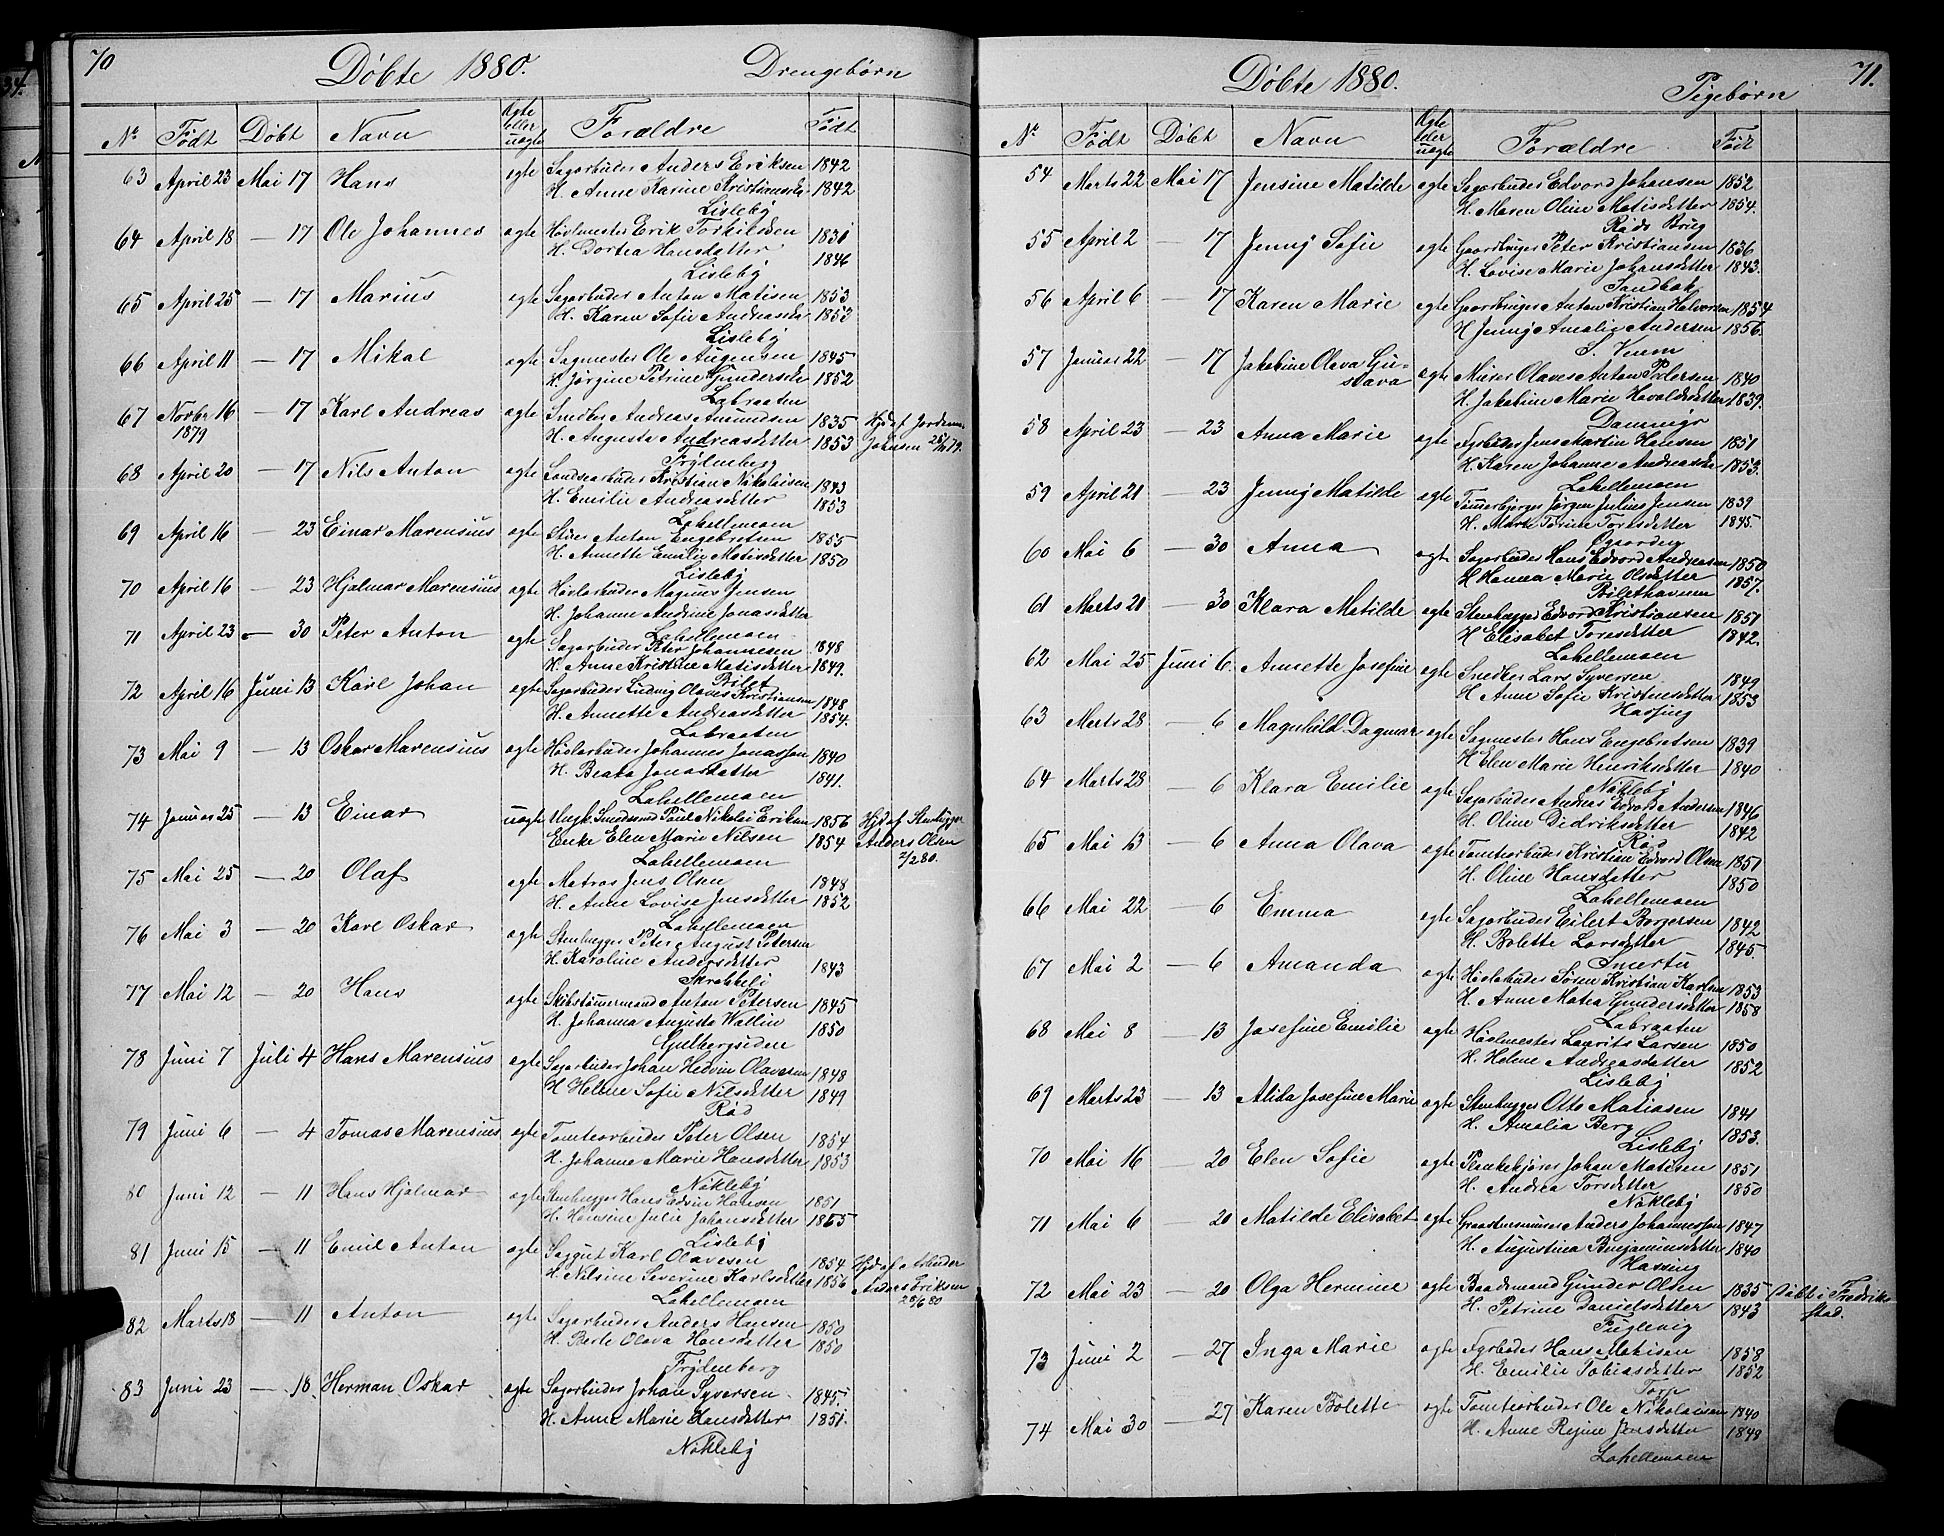 70
Døbte 1880.
Drengebørn
No Født Døbt Navn Ægte eller uægte Forældre Født
63 April 23 Mai 17 Hans egte Sagarbeider Anders Eriksen 1842
H. Anne Karine Kristiansda 1842
Lisleby
64 April 18 — 17 Ole Johannes egte Høvlmester Erik Torkildsen 1831
H. Dortea Hansdatter 1846
Lisleby
65 April 25 — 17 Marius egte Sagarbeider Anton Matisen 1853
H. Karen Sofie Andreasda 1853
Lisleby
66 April 11 — 17 Mikal egte Sagmester Ole Augensen 1845
H. Jørgine Petrine Gundersda 1852
Labraaten
67 Novbr 16 — 17 Karl Andreas egte Snedker Andreas Amundsen 1835 Hjd af Jordem.
1879 H. Augusta Andreasdatter 1853 Johnsen 25/11 79.
Trylenberg
68 April 20 — 17 Nils Anton egte Landsarbeider Kristian Nikolaisen 1843
H. Emilie Andreasdatter 1853
Lahellemoen
69 April 16 — 23 Einar Marensius egte Anton Engebretsen 1855
H. Annette Emilie Matisdatter 1850
Lisleby
70 April 16 — 23 Hjalmar Marensius egte Høvlarbeider Magnus Jensen
H. Johanne Andrine Jonasdatter
Lahellemoen
71 April 23 — 30 Peter Anton egte Sagarbeider Peter Johannesen 1848
H. Anne Kristine Matisdatter 1849.
Bilet
72 April 16 Juni 13 Karl Johan egte Sagarbeider Ludvig Olaves Kristiansen 1848
H. Annette Andreasdatter 1854.
Labraaten
73 Mai 9 — 13 Oskar Marensius egte Høvlarbeider Johannes Jonassen 1840
H. Beata Jonasdatter 1841.
Lahellemoen
74 Januar 25 — 13 Einar uegte Ungk. Paul Nikolai Eriksen 1856 Hjd af Stenhugger
Enke Elen Marie Nilsen 1854 Anders Olsen
Lahellemoen 2/2 80.
75 Mai 25 — 20 Olaf egte Matros Jens Olsen 1848
H. Anne Lovise Jensdatter 1852
Lahellemoen
76 Mai 3 — 20 Karl Oskar egte Stenhugger Peter August Petersen
H. Karoline Andersdatter 1843
77 Mai 12 — 20 Hans egte Skibstømmermand Anton Petersen 1845
H. Johanna Augusta Wallin 1850
Gulbergsiden
78 Juni 7 Juli 4 Hans Marensius egte Sagarbeider Johan Hedvin Olavesen 1848
H. Helene Sofie Nilsdatter 1849
Rød
79 Juni 6 — 4 Tomas Marensius egte Tomtearbeider Peter Olsen 1854
H. Johanne Marie Hansdatter 1853
Nøkleby
80 Juni 12 — 11 Hans Hjalmar egte Stenhugger Hans Edvin Hansen 1851
H. Hansine Julie Johansdatter 1855
Lisleby
81 Juni 15 — 11 Emil Anton egte Saggut Karl Olavesen 1854 Hjd af Arbeider
H. Nilsine Severine Karlsdatter 1856 Anders Eriksen
Lahellemoen 28/6 80
82 Marts 18 — 11 Anton egte Sagarbeider Anders Hansen 1850
H. Berte Olava Hansdatter 1850
Trylenberg
83 Juni 23 — 18. Herman Oskar egte Sagarbeider Johan Syversen 1845.
H. Anne Marie Hansdatter 1851.
Nøkleby
71.
Døbte 1880.
Pigebørn
No Født Døbt Navn Ægte eller uægte Forældre Født
54 Marts 22 Mai 17 Jensine Matilde egte Sagarbeider Edvard Johansen 1852
H. Maren Oline Matisdatter 1854.
Røds Brug
55 April 2 — 17 Jenny Sofie egte Gaardbruger Peter Kristiansen 1836
H. Lovise Marie Johansdatter 1843.
Sandbæk
56 April 6 — 17 Karen Marie egte Gaardbruger Anton Kristian Halvorsen 1854
H. Jenny Amalie Andersen 1856.
S. Veum
57 Januar 22 — 17 Jakobine Olava Gu- egte Murer Olaves Anton Pedersen 1840
stava H. Jakobine Marie Havoldsdatter 1839.
Dammyr
58 April 23 — 23 Anna Marie egte Jens Martin Hansen 1851
H. Karen Johanne Andreasda 1853.
Lahellemoen
59 April 21 — 23 Jenny Matilde egte Jørgen Julius Jensen 1839
H. Torine Toresdatter 1845.
60 Mai 6 — 30 Anna egte Sagarbeider Hans Edvard Andreasen 1850
H. Hanna Marie Olsdatter 1857.
61 Marts 21 — 30 Klara Matilde egte Stenhugger Edvard Kristiansen 1851
H. Elisabet Toresdatter 1842.
Lahellemoen
62 Mai 25 Juni 6. Annette Josefine egte Snedker Lars Syversen 1849
H. Anne Sofie Kristensdatter 1853
Hassing
63 Marts 28 — 6 Magnhild Dagmar egte Sagmester Hans Engebretsen 1839
H. Elen Marie Henriksdatter 1840
Nøkleby
64 Marts 28 — 6 Klara Emilie egte Sagarbeider Andreas Edvard Andersen 1846
H. Oline Didriksdatter 1842
Rød
65 Mai 13 — 6 Anna Olava egte Tomtearbeider Kristian Edvard Olsen 1851
H. Oline Hansdatter 1850
Lahellemoen
66 Mai 22 — 6 Emma egte Sagarbeider Eilert Borgersen 1842
H. Bolette Larsdatter 1845.
Smertu
67 Mai 2 — 6 Amanda egte Høvlarbeider Søren Kristian Karlsen 1853
H. Anne Matea Gundersdatter 1858
Labraaten
68 Mai 8 — 13 Josefine Emilie egte Høvlmester Laurits Larsen 1850
H. Helene Andreasdatter 1852
Lisleby
69 Marts 23 — 13 Alida Josefine Marie egte Stenhugger Otto Matiasen 1841
H. Amalia Berg 1853.
Lisleby
70 Mai 16 — 20 Elen Sofie egte Plankekjører Johan Matisen 1851
H. Andrea Torsdatter 1850
Nøkleby
71 Mai 6 — 20 Matilde Elisabet egte Graastensmurer Anders Johannessen 1847
H. Augustina Benjaminsdatter 1840
Hassing
72 Mai 23 — 20 Olga Hermine egte Baadsmand Gunder Olsen 1835 Døbt i Fredrik-
H. Petrine Danielsdatter 1843 stad.
Fuglevig
73 Juni 2 — 27 Inga Marie egte Hans Matisen 1858
H. Emilie Tobiasdatter 1852
Torp
74 Mai 30 — 27 Karen Bolette egte Tomtearbeider Ole Nikolaisen 1840
H. Anne Regine Jensdatter 1848
Lahellemoen